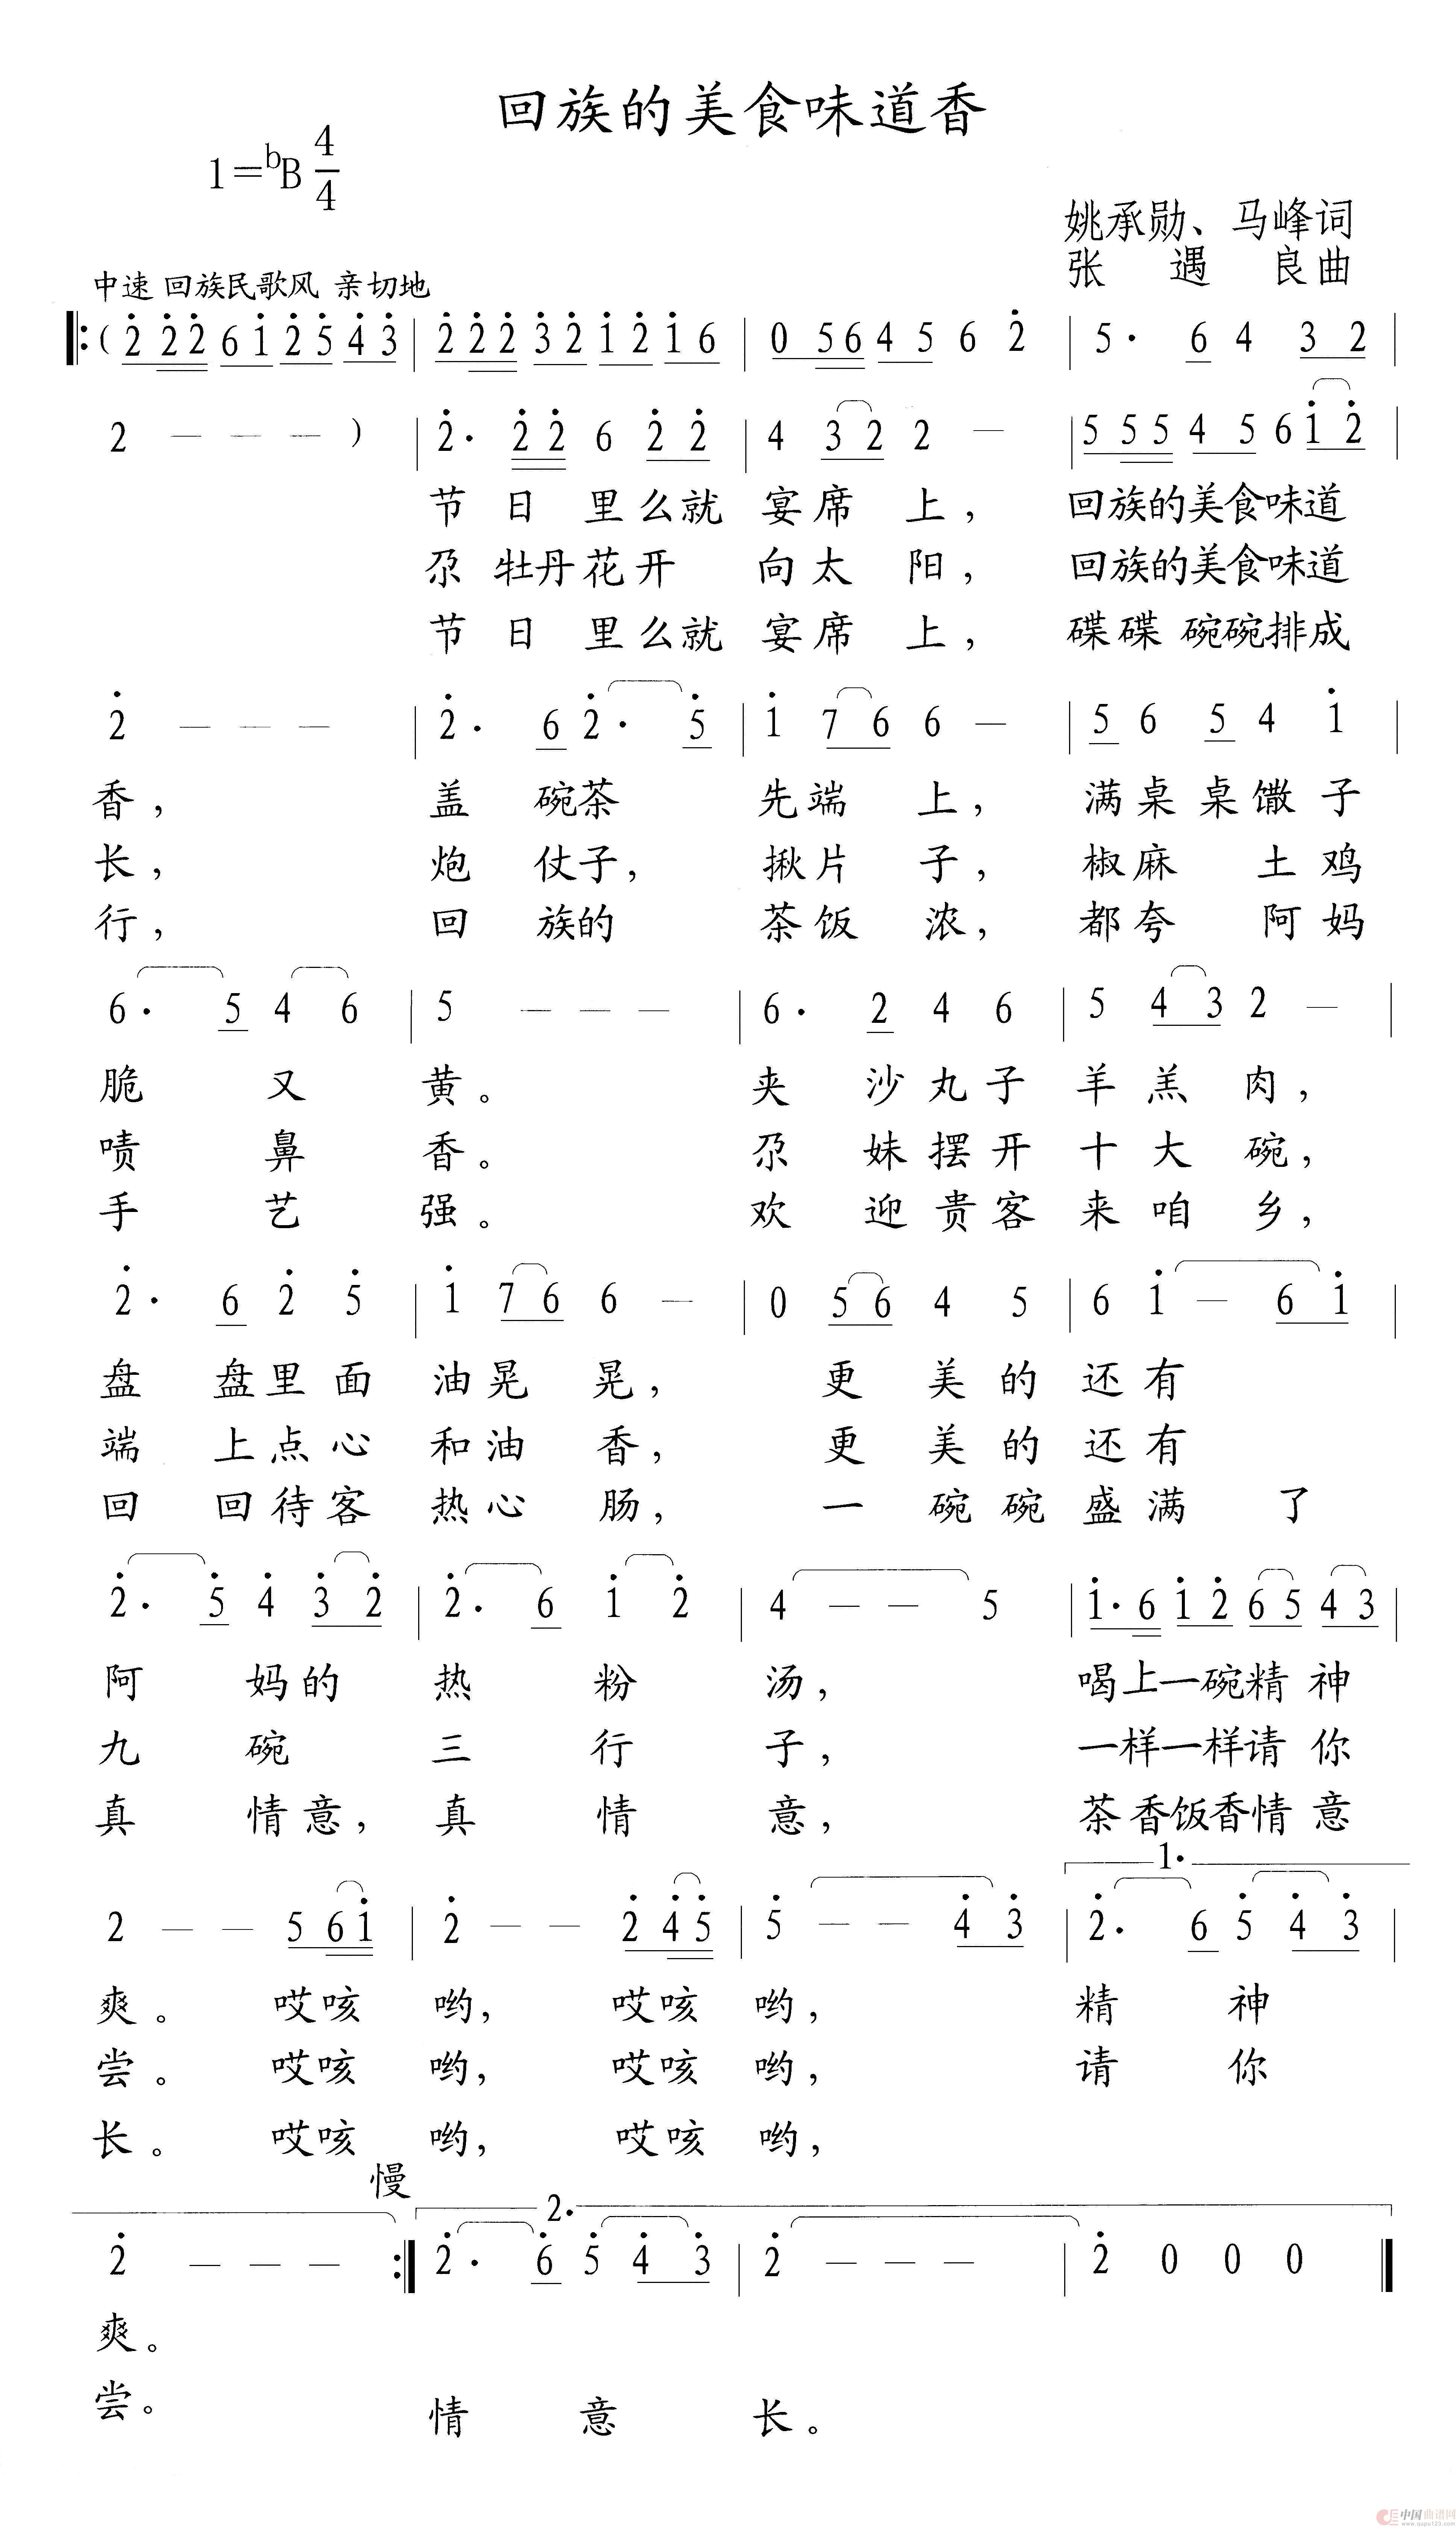 回族的美食味道香
1=ᵇB 4/4
姚承勋、马峰词
张 遇 良曲
中速 回族民歌风 亲切地
‖: ( 2̇ 2̇2̇ 6 1̇ 2̇ 5̇ 4̇ 3̇ | 2̇ 2̇2̇ 3̇ 2̇ 1̇ 2̇ 1̇ 6 | 0 56 4 5 6 2̇ | 5· 6 4 3 2 |
2 — — — ) | 2̇· 2̇ 2̇ 6 2̇ 2̇ | 4 3 2 2 — | 5 5 5 4 5 6 1̇ 2̇ |
节 日 里么就 宴席 上， 回族的美食味道
尕 牡丹花开 向太 阳， 回族的美食味道
节 日 里么就 宴席 上， 碟碟 碗碗排成
2̇ — — — | 2̇· 6 2̇· 5̇ | 1̇ 7 6 6 — | 5 6 5 4 1̇ |
香， 盖 碗茶 先端 上， 满桌 桌馓 子
长， 炮 仗子， 揪片 子， 椒麻 土 鸡
行， 回 族的 茶饭 浓， 都夸 阿 妈
6· 5 4 6 | 5 — — — | 6· 2 4 6 | 5 4 3 2 — |
脆 又 黄。 夹 沙丸子 羊羔 肉，
啧 鼻 香。 尕 妹摆开 十大 碗，
手 艺 强。 欢 迎贵客 来咱 乡，
2̇· 6 2̇ 5̇ | 1̇ 7 6 6 — | 0 5 6 4 5 | 6 1̇ — 6 1̇ |
盘 盘里面 油晃 晃， 更 美的 还有
端 上点心 和油 香， 更 美的 还有
回 回待客 热心 肠， 一 碗碗 盛满 了
2̇· 5̇ 4̇ 3̇ 2̇ | 2̇· 6 1̇ 2̇ | 4 — — 5 | 1̇· 6 1̇ 2̇ 6 5 4 3 |
阿 妈的 热 粉 汤， 喝上一碗精 神
九 碗 三 行 子， 一样一样请 你
真 情意， 真 情 意， 茶香饭香情 意
1·
2 — — 5 6 1̇ | 2̇ — — 2̇ 4̇ 5̇ | 5̇ — — 4̇ 3̇ | 2̇· 6 5̇ 4̇ 3̇ |
爽。 哎咳 哟， 哎咳 哟， 精 神
尝。 哎咳 哟， 哎咳 哟， 请 你
长。 哎咳 哟， 哎咳 哟，
慢
2·
2̇ — — — :‖ 2̇· 6̇ 5̇ 4̇ 3̇ | 2̇ — — — | 2̇ 0 0 0 ‖
爽。
尝。
情 意 长。
中国曲谱网
www.qupu123.com